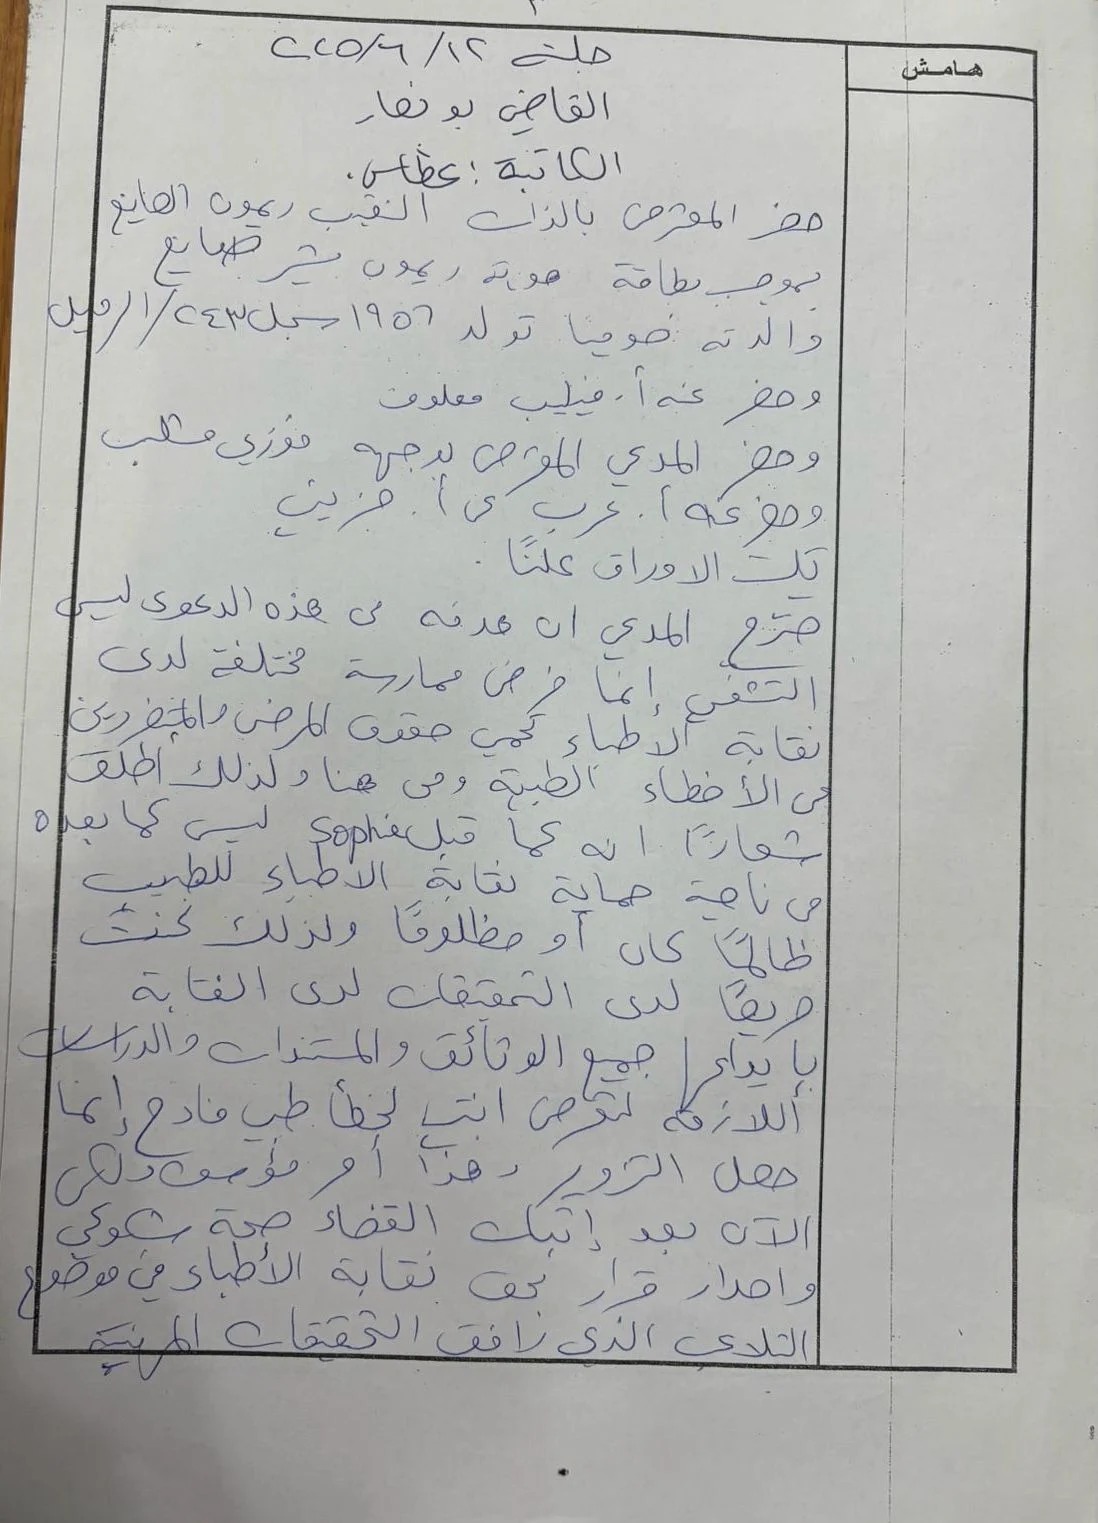 هامش
جلسة ١٢/٦/٢٠٢٥
القاضي بو نصار
الكاتبة: عطاس.
حضر المعترض بالذات النقيب ريمون الصايغ
بموجب بطاقة هويته ريمون بشير صايغ
والدته ضومينا تولد ١٩٥٦ سجل ٢٤٣/الرميل
وحضر عنه أ. فيليب معلوف
وحضر المدعي المعترض بوجهه فوزي مشلب
وحضر عنه أ. عرب عن أ. جزيني
تليت الاوراق علنًا.
صرّح المدعي ان هدفه من هذه الدعوى ليس
التشفي إنما فرض ممارسة مختلفة لدى
نقابة الأطباء تحمي حقوق المرضى والمتضررين
من الأخطاء الطبية ومن هنا ولذلك أطلقت
شعارًا انه كما قبل Sophie ليس كما بعده
من ناحية حماية نقابة الأطباء للطبيب
ظالمًا كان أو مظلومًا ولذلك كنت
حريصًا لدى التحقيقات لدى النقابة
بإيداع جميع الوثائق والمستندات والدراسات
اللازمة لتعرض ابنتي لخطأ طبي فادح إنما
حصل التزوير وهذا أمر مؤسف ولكن
الآن بعد إثبات القضاء صحة شكوكي
واصدار قرار بحق نقابة الأطباء في موضوع
التلاعب الذي رافق التحقيقات المهنية